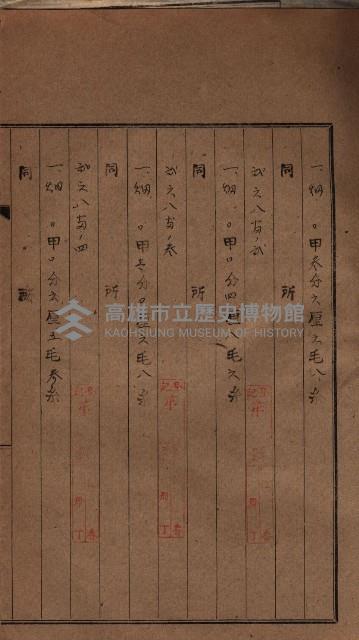 一、畑 〇甲參分六厘六毛八糸
同所
貳六八芀ノ貳
一、畑 〇甲〇分四厘八毛六糸
同所
貳六八芀ノ參
一、畑 〇甲壱分〇厘六毛八糸
同所
貳六八芀ノ四
一、畑 〇甲〇分六厘五毛參糸
同所
高雄市立歷史博物館
KAOHSIUNG MUSEUM OF HISTORY